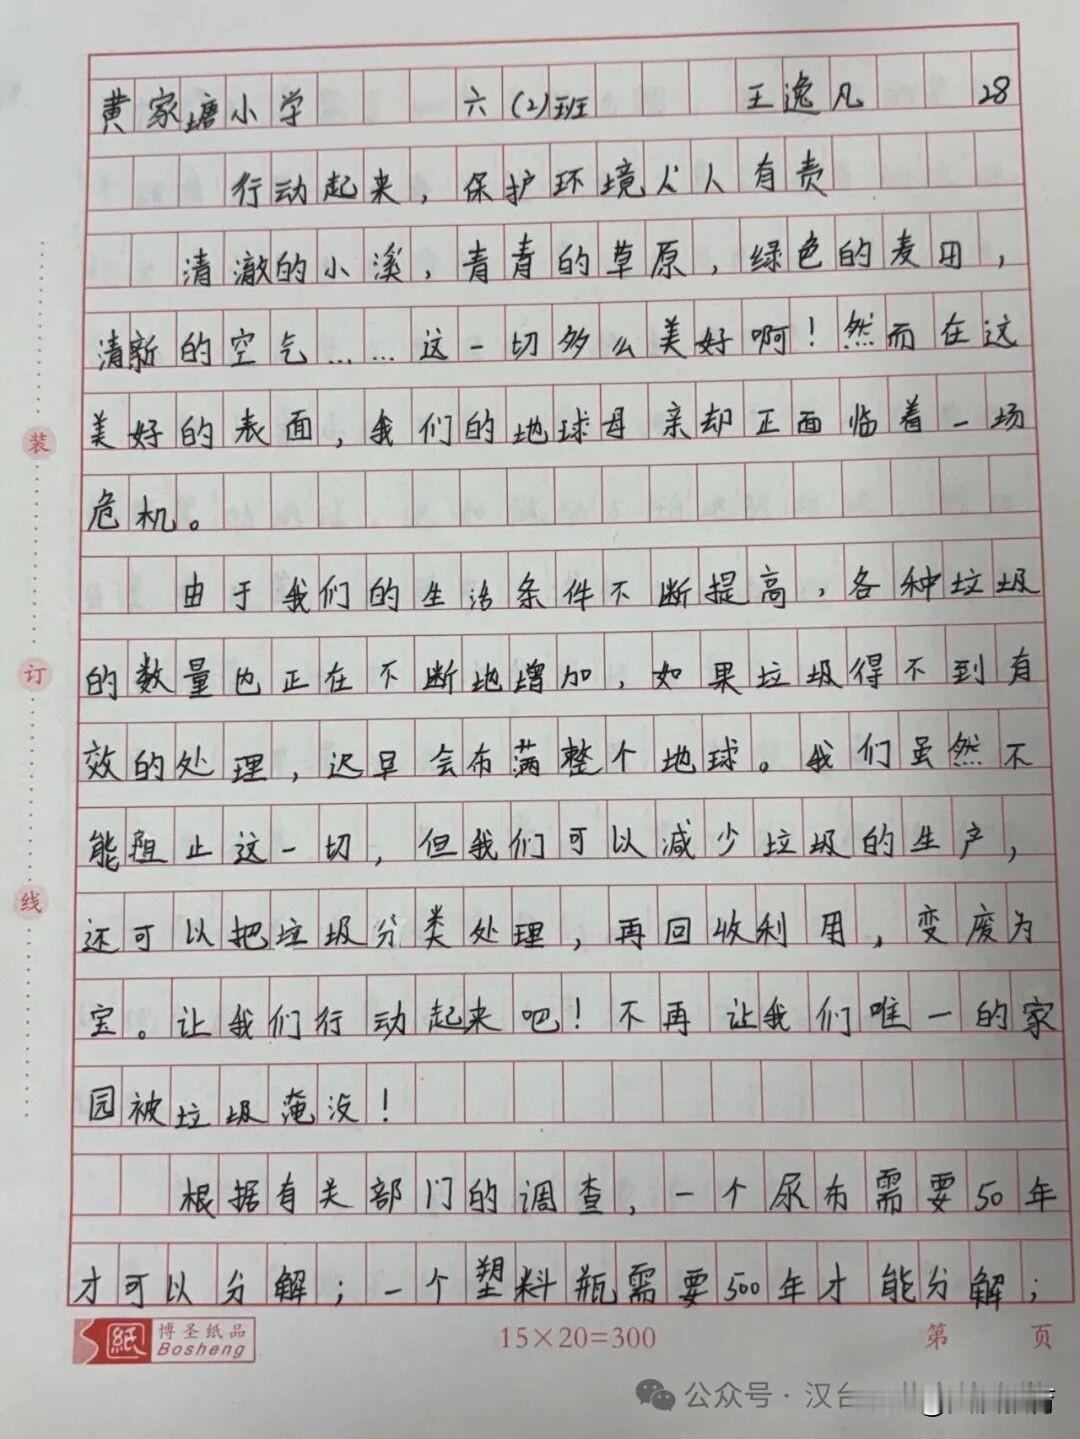 黄家塘小学 六(2)班 王逸凡 28
行动起来，保护环境人人有责
清澈的小溪，青青的草原，绿色的麦田，
清新的空气……这一切多么美好啊！然而在这
美好的表面，我们的地球母亲却正面临着一场
危机。
由于我们的生活条件不断提高，各种垃圾
的数量也正在不断地增加，如果垃圾得不到有
效的处理，迟早会布满整个地球。我们虽然不
能阻止这一切，但我们可以减少垃圾的生产，
还可以把垃圾分类处理，再回收利用，变废为
宝。让我们行动起来吧！不再让我们唯一的家
园被垃圾淹没！
根据有关部门的调查，一个尿布需要50年
才可以分解；一个塑料瓶需要500年才能分解；
装
订
线
纸 博圣纸品
Bosheng
15×20=300
第 页
公众号·汉台